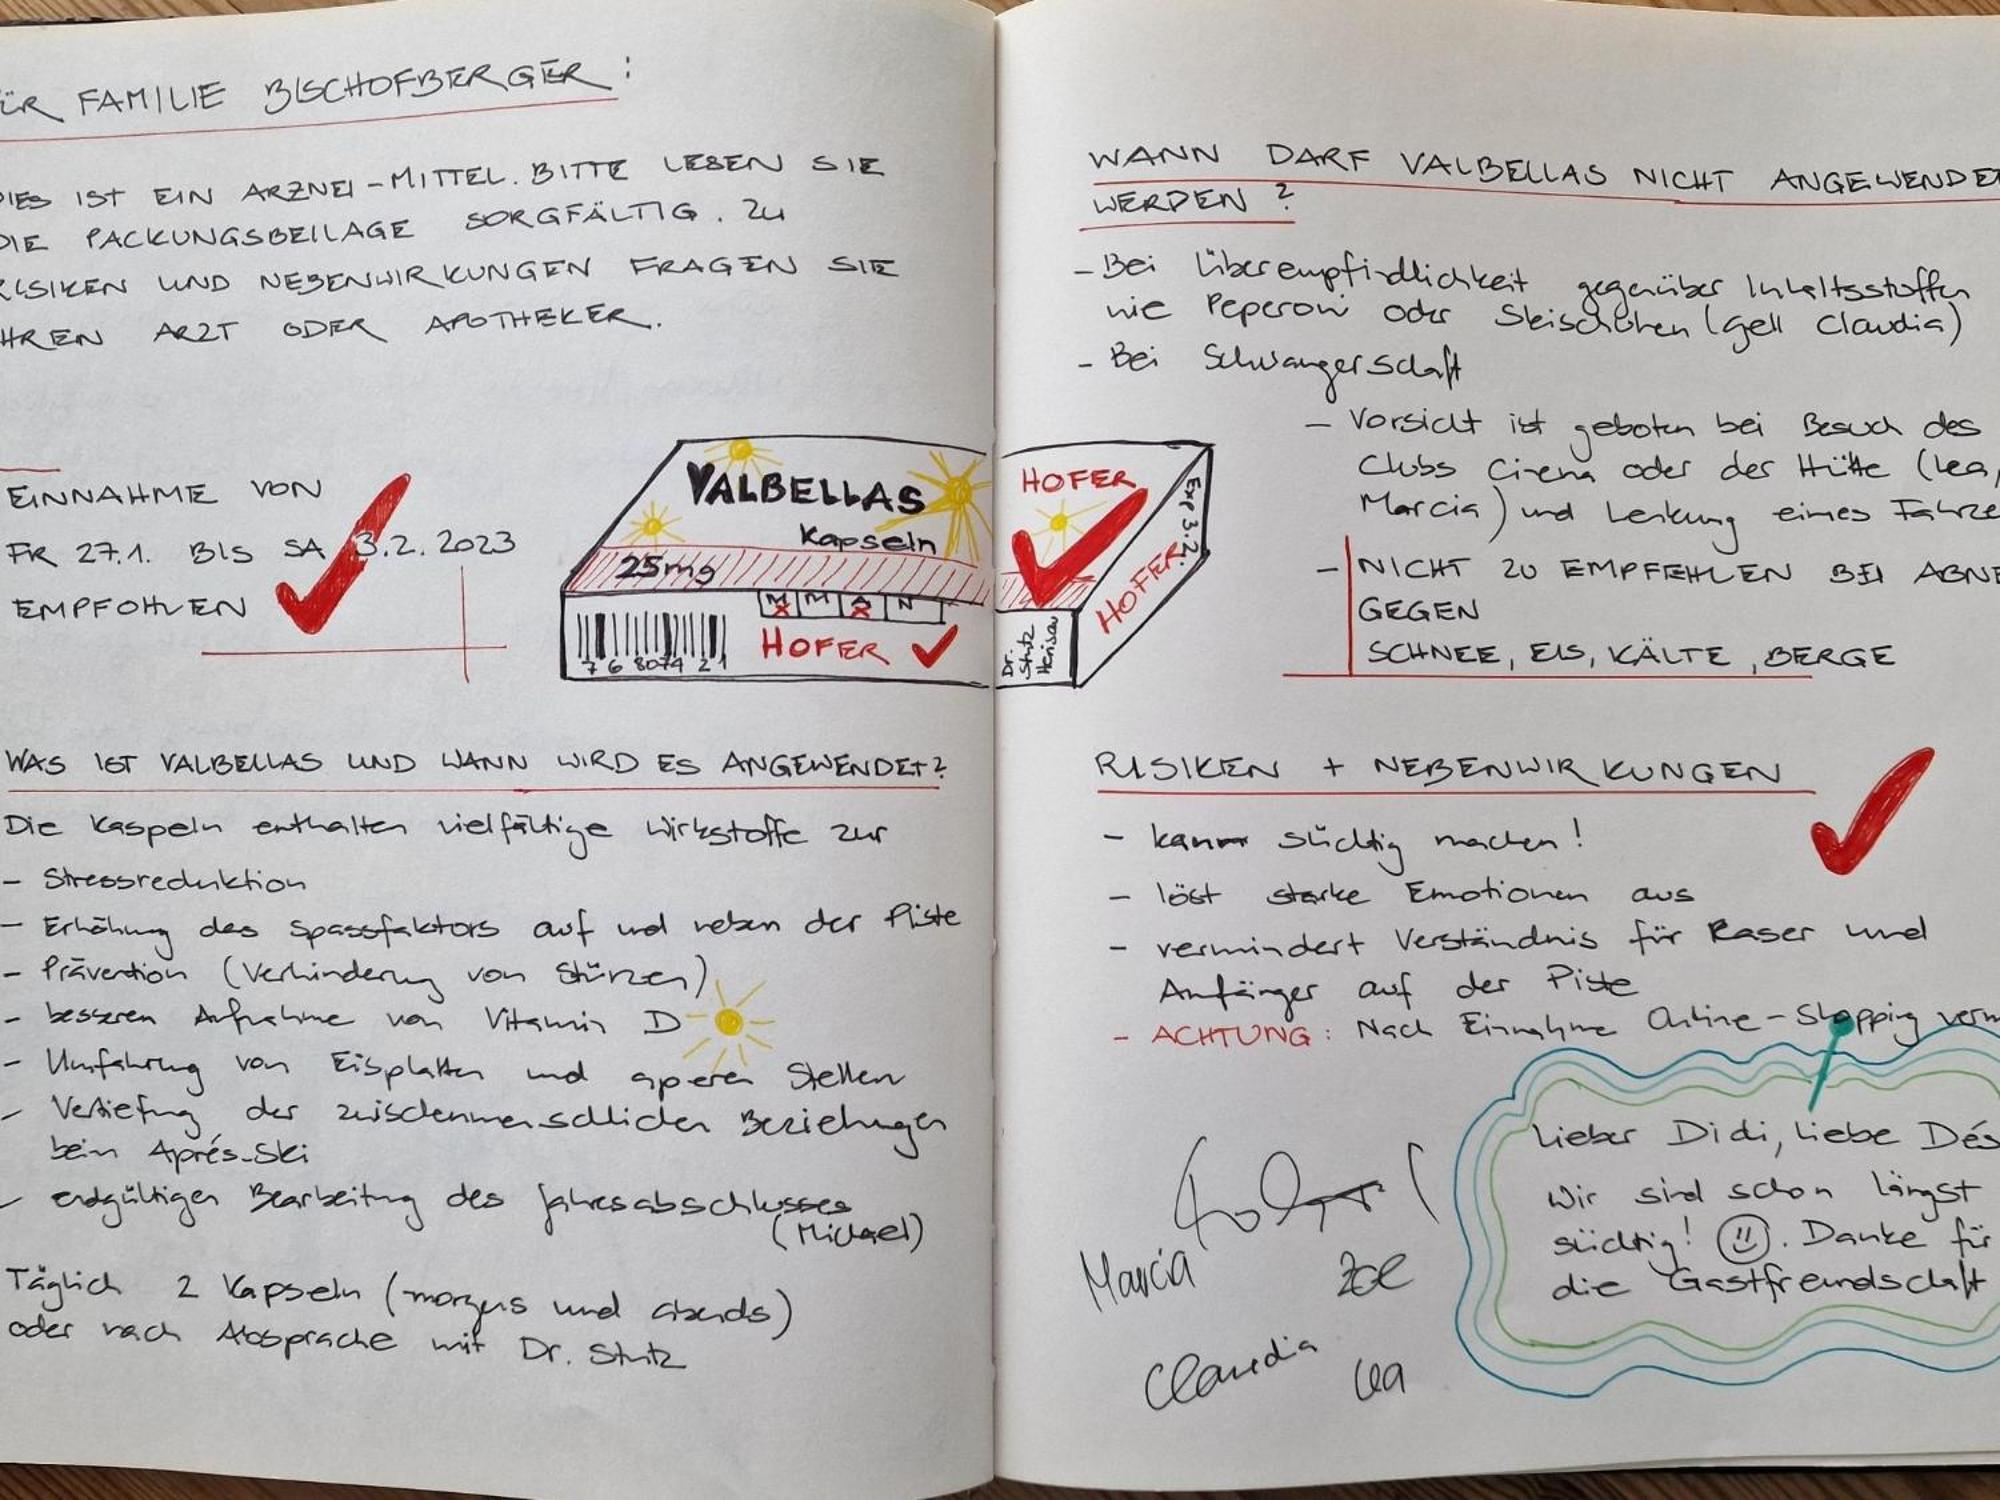 ÜR FAMILIE BISCHOFBERGER:
DIES IST EIN ARZNEI-MITTEL. BITTE LESEN SIE
DIE PACKUNGSBEILAGE SORGFÄLTIG. ZU
RISIKEN UND NEBENWIRKUNGEN FRAGEN SIE
HREN ARZT ODER APOTHEKER.
EINNAHME VON
FR 27.1. BIS SA 3.2.2023
EMPFOHLEN
VALBELLAS
Kapseln
25mg
M M A N
7 6 8074 21
HOFER
HOFER
Exp 3.2.
HOFER
Dr.
Stutz
Herisau
WAS IST VALBELLAS UND WANN WIRD ES ANGEWENDET?
Die Kaspeln enthalten vielfältige Wirkstoffe zur
- Stressreduktion
- Erhöhung des Spassfaktors auf und neben der Piste
- Prävention (Verhinderung von Stürzen)
- besseren Aufnahme von Vitamin D
- Umfahrung von Eisplatten und aperen Stellen
- Vertiefung der zwischenmenschlichen Beziehungen
beim Aprés-Ski
- endgültigen Bearbeitung des Jahresabschlusses
(Michael)
Täglich 2 Kapseln (morgens und abends)
oder nach Absprache mit Dr. Stutz
WANN DARF VALBELLAS NICHT ANGEWENDET
WERDEN?
- Bei Überempfindlichkeit gegenüber Inhaltsstoffen
wie Peperoni oder Skischuhen (gell Claudia)
- Bei Schwangerschaft
- Vorsicht ist geboten bei Besuch des
Clubs Cinema oder der Hütte (Lea,
Marcia) und Lenkung eines Fahrze
- NICHT ZU EMPFEHLEN BEI ABNE
GEGEN
SCHNEE, EIS, KÄLTE, BERGE
RISIKEN + NEBENWIRKUNGEN
- kann süchtig machen!
- löst starke Emotionen aus
- vermindert Verständnis für Raser und
Anfänger auf der Piste
- ACHTUNG: Nach Einnahme Online-Shopping verm
Lieber Didi, liebe Dés
Wir sind schon längst
süchtig! Danke für
die Gastfreundschaft
Marcia Zoe
Claudia Lea